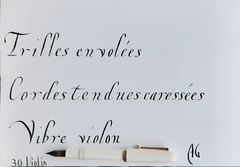 Trilles envolées
Cordes tendues caressées
Vibre violon
30 Violin
AG